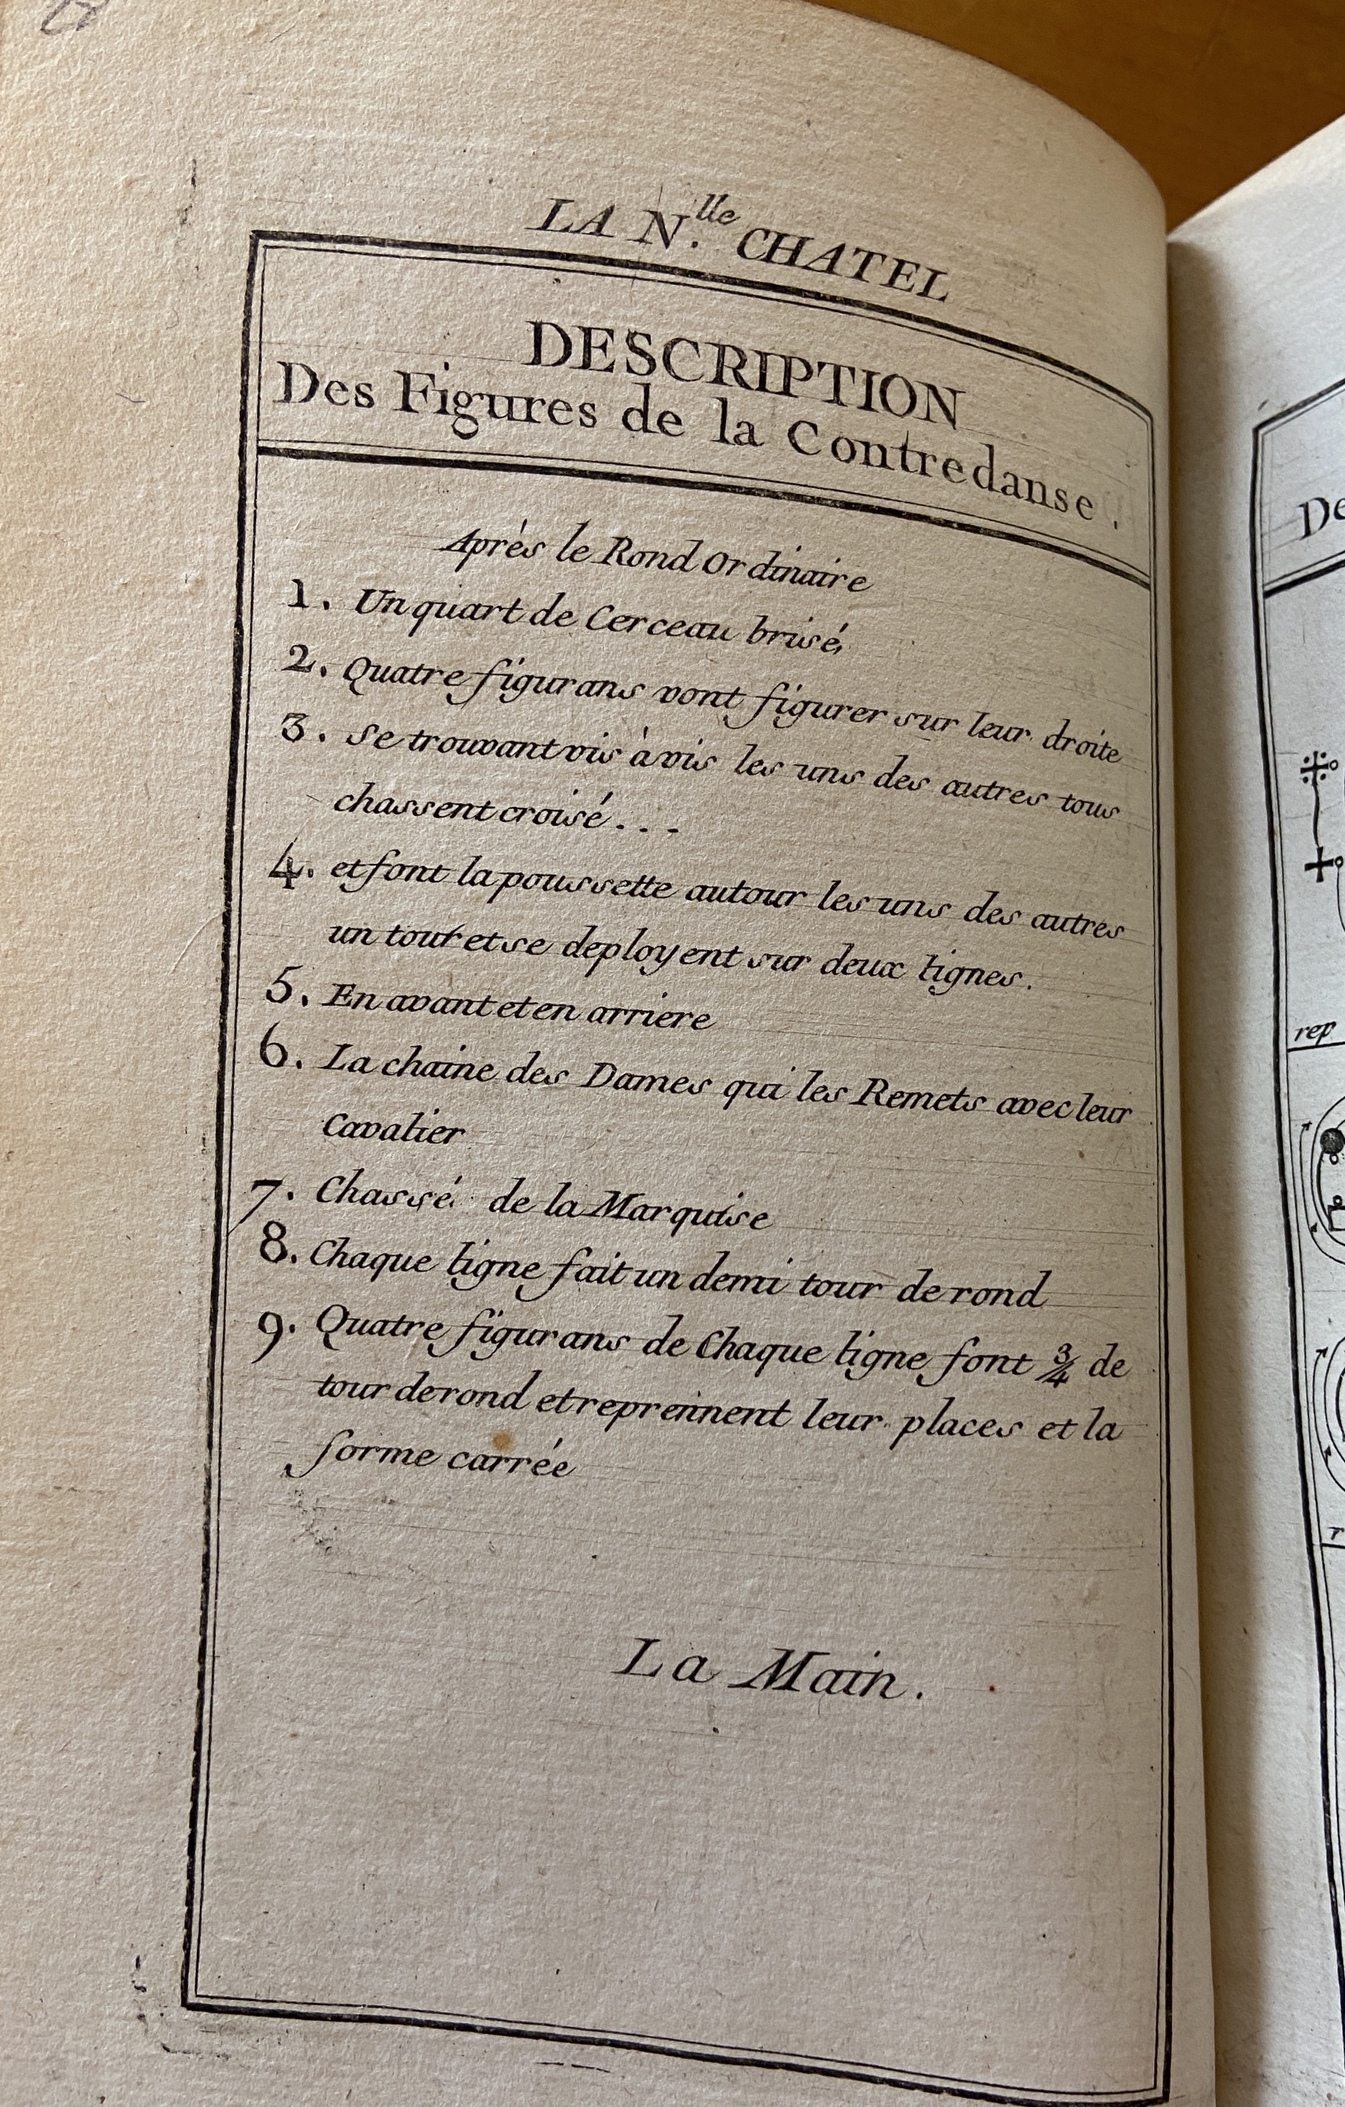 LA N.lle CHATEL
DESCRIPTION
Des Figures de la Contredanse.
Après le Rond Ordinaire
1. Un quart de Cerceau brisé
2. Quatre figurans vont figurer sur leur droite
3. Se trouvant vis à vis les uns des autres tous
chassent croisé...
4. et font la poussette autour les uns des autres
un tour et se deployent sur deux lignes.
5. En avant et en arriere
6. La chaine des Dames qui les Remets avec leur
Cavalier
7. Chassé de la Marquise
8. Chaque ligne fait un demi tour de rond
9. Quatre figurans de Chaque ligne font 3/4 de
tour de rond et reprennent leur places et la
forme carrée
La Main.
De
rep
r